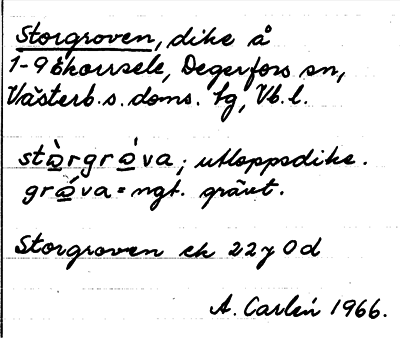 Storgroven, dike å
1-9 Ekorrsele, Degerfors sn,
Västerb. s. doms. lg, Vb. l.
stò̲rgrò̲va; utloppsdike.
grò̲va = ngt. grävt.
Storgroven ek 22y 0d
A. Carlén 1966.